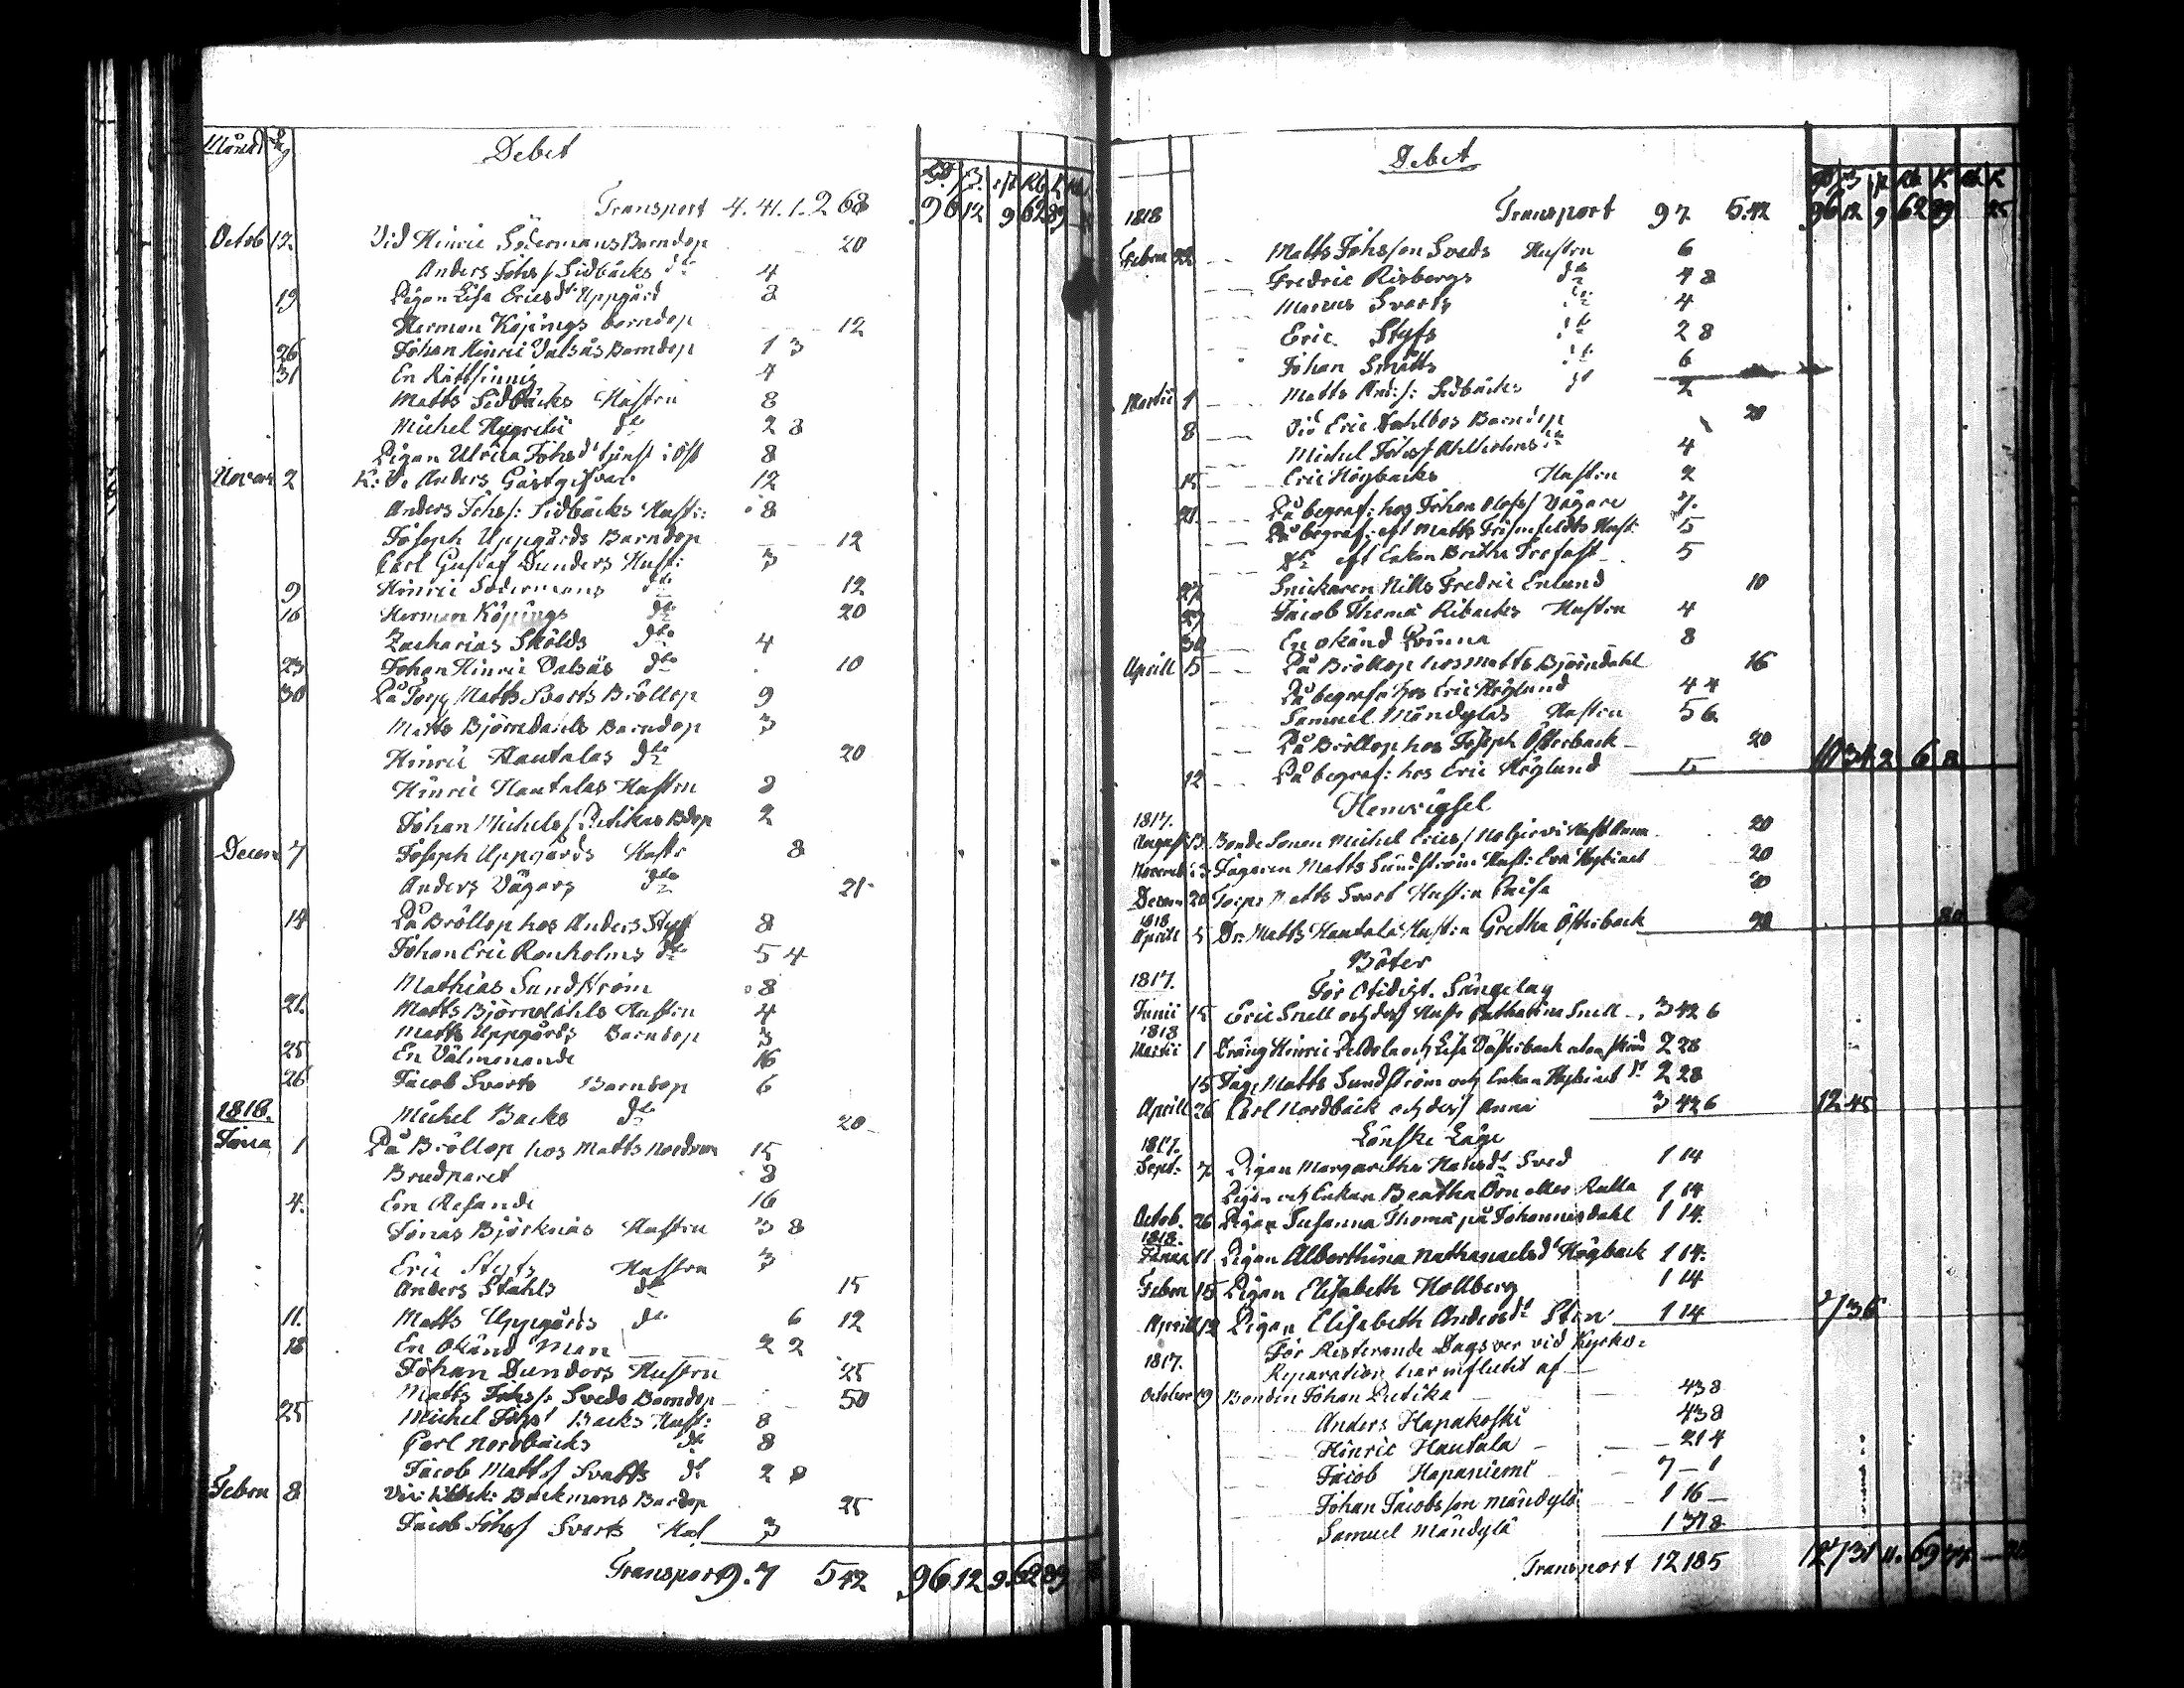 Månad Dag Debet
Transport 4. 41. 1. 2 68 96 12 9 62 89
Octob 12. Vid Hinric Södermans Barndop 20
Anders Johs/ Sidbäcks dto 4
19 Pigan Lisa Ericsdr Uppgård 8
Herman Köpings barndop 12
26 Johan Hinric Valsäs Barndop 1 3
31 En Rättsinnig 4
Matts Sidbäcks Hustru 8
Michel dto 2 8
Pigan Ulrica Johsdr tjenst i Öst 8
Novem 2 Anders Gästgifvar 12
Anders Johs/: Sidbäcks Hust: 8
Joseph Uppgårds Barndop 12
Carl Gustaf Dunders Hust: 3
9 Hinric Södermans dto 12
16 Herman Köpings dto 20
Zacharias Skölds dto 4
23 Johan Hinric Valsäs dto 10
30 På Torp Matts Svarts Bröllop 9
Matts Björndahls Barndop 3
Hinric Hautalas dto 20
Hinric Hautalas Hustru 8
Johan Michels/ Putikas Bdop 2
Decem 7 Joseph Uppgårds Hustr 8
Anders Vägars dto 21
14 På Bröllop hos Anders Styf 8
Johan Eric Ronholms dto 5 4
Mathias Sundström 8
21. Matts Björndahls Hustru 4
Matts Uppgårds Barndop 3
25 En Välmenande 16
26 Jacob Svarts Barndop 6
1818. Michel Backs dto 20
Janua 1 På Bröllop hos Matts 15
Brudparet 8
4. En Resande 16
Jonas Björknäs Hustru 3 8
Eric Styfs Hustru 3
Anders Ståhls dto 15
11. Matts Uppgårds dto 6 12
18 En Okänd Man 2 2
Johan Dunders Hustru 25
Matts Johs/: Sveds Barndop 50
25 Michel Johs/ Backs Hust: 8
Carl Nordbäcks dto 8
Jacob Matts/ Svarts dto 2 8
Febru 8 Vid Backmans Bardop 25
Jacob Johs/ Svarts Hust 3
Transport 9. 7 542 96 12 9 62 89
Debet
1818 Transport 97 542 96 12 9 62 89 25
Febru 22 Matts Johsson Sveds Hustru 6
Fredric Risbergs dto 4 8
Marcus Svarts dto 4
Eric Styfs dto 2 8
Johan Smätts dto 6
Martii 1 Matts And:s: Sidbäcks dto 2
8 Vid Eric Dahlbos Barndop 20
Michel Johs/ Ahlholms dto 4
15 Eric Högbacks Hustru 2
21. På begraf: hos Johan Olofs/ Vägare 7.
På begraf: eft Matts Hust: 5
dto eft Enkan Britha Trofast 5
27 Snickaren Nills Fredric Enlund 10
29 Jacob Thomæ Ribacks Hustru 4
30 En okänd Qvinna 8
Aprill 5 På Bröllop hos Matts Björndahl 16
På begrafn: hos Eric Höglund 4 4
Samuel Mändyläs Hustru 5 6
På Bröllop hos Joseph Österback 20
12 På begraf: hos Eric Höglund 5 10 34 2 6 8
Hemvigsel
1817.
August 13 Bonde Sonen Michel Erics/ Holjervi Hust Anna 20
Novemb 23 Jägaren Matts Sundström Hust: Eva 20
Decem 20 Torp: Matts Svart Hustru Caisa 20
1818
Aprill 5 Dr: Matts Hautala Hustru Gretha Österback 20 80
Böter
1817. För Otidigt. Sängelag
Junii 15 Eric Snell och dess Hustr Catharina Snell 3 42 6
1818
Martii 1 Dräng Hinric och Lisa Österback 2 28
15 Jäg: Matts Sundström och Enkan dto 2 28
Aprill 26 Carl Nordbäck och dess Anna 3 42 6 12 45
Lönske Läge
1817.
Sept: 7 Pigan Margaretha Matsdr Sved 1 14
Pigan och Enkan Beatha Örn eller Kulla 1 14
Octob. 26 Pigan Susanna Thomæ på Johannisdahl 1 14.
1818.
Janua 11 Pigan Alberthina Nathanaelsdr Högback 1 14.
Febru 15 Pigan Elisabeth Hollberg 1 14
Aprill 12 Pigan Elisabeth Andersdr Sten 1 14 7 36
1817. För Resterande Dagsver vid Kyrko:
Reparation har influtit af
October 19 Bonden Johan Putika 4 38
Anders Hapakoski 4 38
Hinric Hautala 2 14
Jacob Hapaniemi 7 – 1
Johan Jacobsson Mändylä 1 16 –
Samuel Mändylä 1 37 8
Transport 12 18 5 127 31 11. 69 77